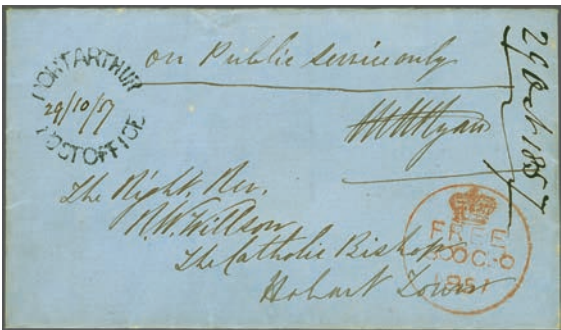 PORT ARTHUR
29/10/57
POST OFFICE
on Public Service only
29 Oct 1857
The Right. Rev.
R.W. Willson
The Catholic Bishop
Hobart Town
FREE
30 OC
1857